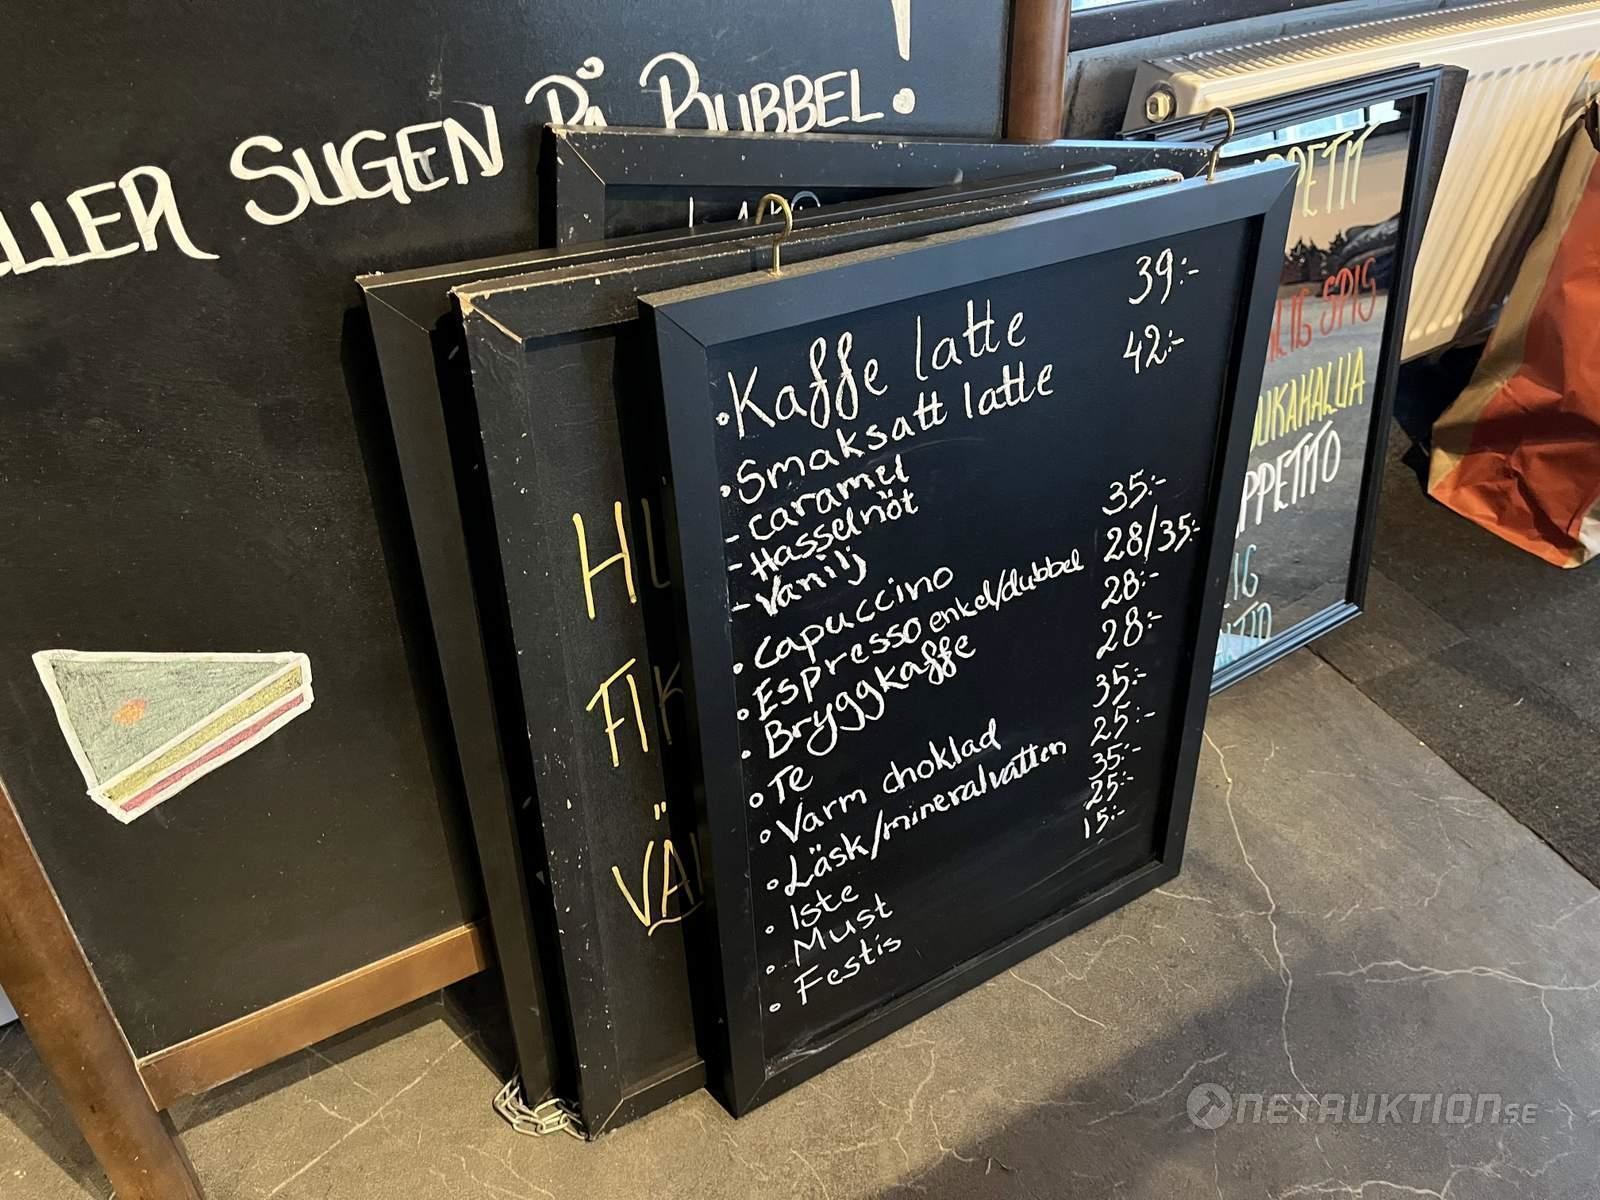 LLER SUGEN PÅ BUBBEL!
• Kaffe latte 39:-
• Smaksatt latte 42:-
- Caramel
- Hasselnöt
- Vanilj
• Capuccino 35:-
• Espresso enkel/dubbel 28/35:-
• Bryggkaffe 28:-
• Te 28:-
• Varm choklad 35:-
• Läsk/mineralvatten 25:-
• Iste 35:-
• Must 25:-
• Festis 15:-
H
FIK
VÄ
PPETIT
LIG SPIS
UKAHALUA
PPETITO
IG
NETAUKTION.SE